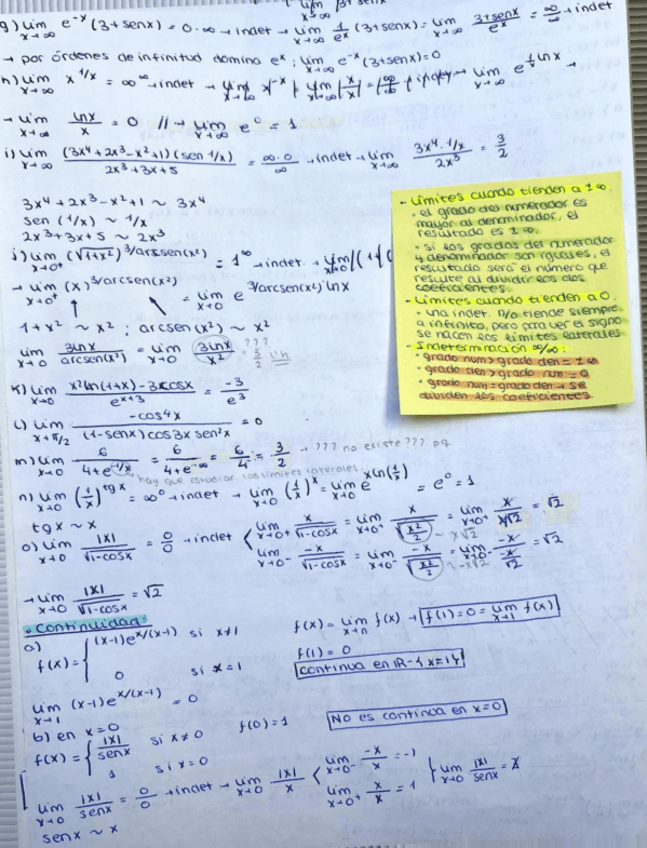 lim x→∞ 3+senx
g) lim x→∞ e^-x (3+senx) = 0·∞ → indet → lim x→∞ 1/e^x (3+senx) = lim x→∞ (3+senx)/e^x = ∞/∞ → indet
→ por órdenes de infinitud domina e^x; lim x→∞ e^-x (3+senx) = 0
h) lim x→∞ x^1/x = ∞^0 → indet → lim x→∞ e^(1/x lnx) →
→ lim x→∞ lnx/x = 0 // → lim x→∞ e^0 = 1
i) lim x→∞ (3x⁴+2x³-x²+1)(sen 1/x) / 2x³+3x+5 = ∞·0/∞ → indet → lim x→∞ 3x⁴·1/x / 2x³ = 3/2
3x⁴+2x³-x²+1 ~ 3x⁴
sen (1/x) ~ 1/x
2x³+3x+5 ~ 2x³
j) lim x→0⁺ (√1+x²)^3/arcsen(x²) = 1^∞ → indet.
→ lim x→0⁺ (x)^3/arcsen(x²) = lim x→0 e^3/arcsen(x²) lnx
1+x² ~ x² ; arcsen(x²) ~ x²
lim x→0 3lnx/arcsen(x²) = lim x→0 3lnx/x² ??? 3/2
k) lim x→0 x²ln(1+x)-3cosx / e^x+3 = -3/e³
l) lim x→π/2 -cos4x / (1-senx)cos3x sen²x = 0
m) lim x→0 6/4+e^-1/x = 6/4+e^-∞ = 6/4 = 3/2 → ??? no existe ??? pq
hay que estudiar los límites laterales
n) lim x→0 (1/x)^tgx = ∞^0 → indet → lim x→0 (1/x)^x = lim x→0 e^xln(1/x) = e^0 = 1
tgx ~ x
o) lim x→0 |x|/√1-cosx = 0/0 → indet { lim x→0⁺ x/√1-cosx = lim x→0⁺ x/√x²/2 = lim x→0⁺ x/x/√2 = √2
~ x√2
lim x→0⁻ -x/√1-cosx = lim x→0⁻ -x/√x²/2 = lim x→0⁻ -x/-x/√2 = √2
~ -x√2
→ lim x→0 |x|/√1-cosx = √2
• Continuidad:
a)
f(x) = { (x-1)e^x/(x-1) si x≠1
0 si x=1
f(x) = lim x→n f(x) → f(1)=0= lim x→1 f(x)
f(1) = 0
continua en ℝ-{x=1}
lim x→1 (x-1)e^x/(x-1) = 0
b) en x=0
f(x) = { |x|/senx si x≠0
1 si x=0
f(0)=1
No es continua en x=0
lim x→0 |x|/senx = 0/0 → indet → lim x→0 |x|/x { lim x→0⁻ -x/x = -1
lim x→0⁺ x/x = 1 } lim x→0 |x|/senx = ∄
senx ~ x
- Límites cuando tienden a ±∞.
• el grado del numerador es
mayor al denominador, el
resultado es ±∞.
• si los grados del numerador
y denominador son iguales, el
resultado será el número que
resulte al dividir los dos
coeficientes.
- Límites cuando tienden a 0.
• una indet. n/0 tiende siempre
a infinito, pero para ver el signo
se hacen los límites laterales
- Indeterminación ∞/∞:
• grado num > grado den = ±∞
• grado den > grado num = 0
• grado num = grado den → se
dividen los coeficientes